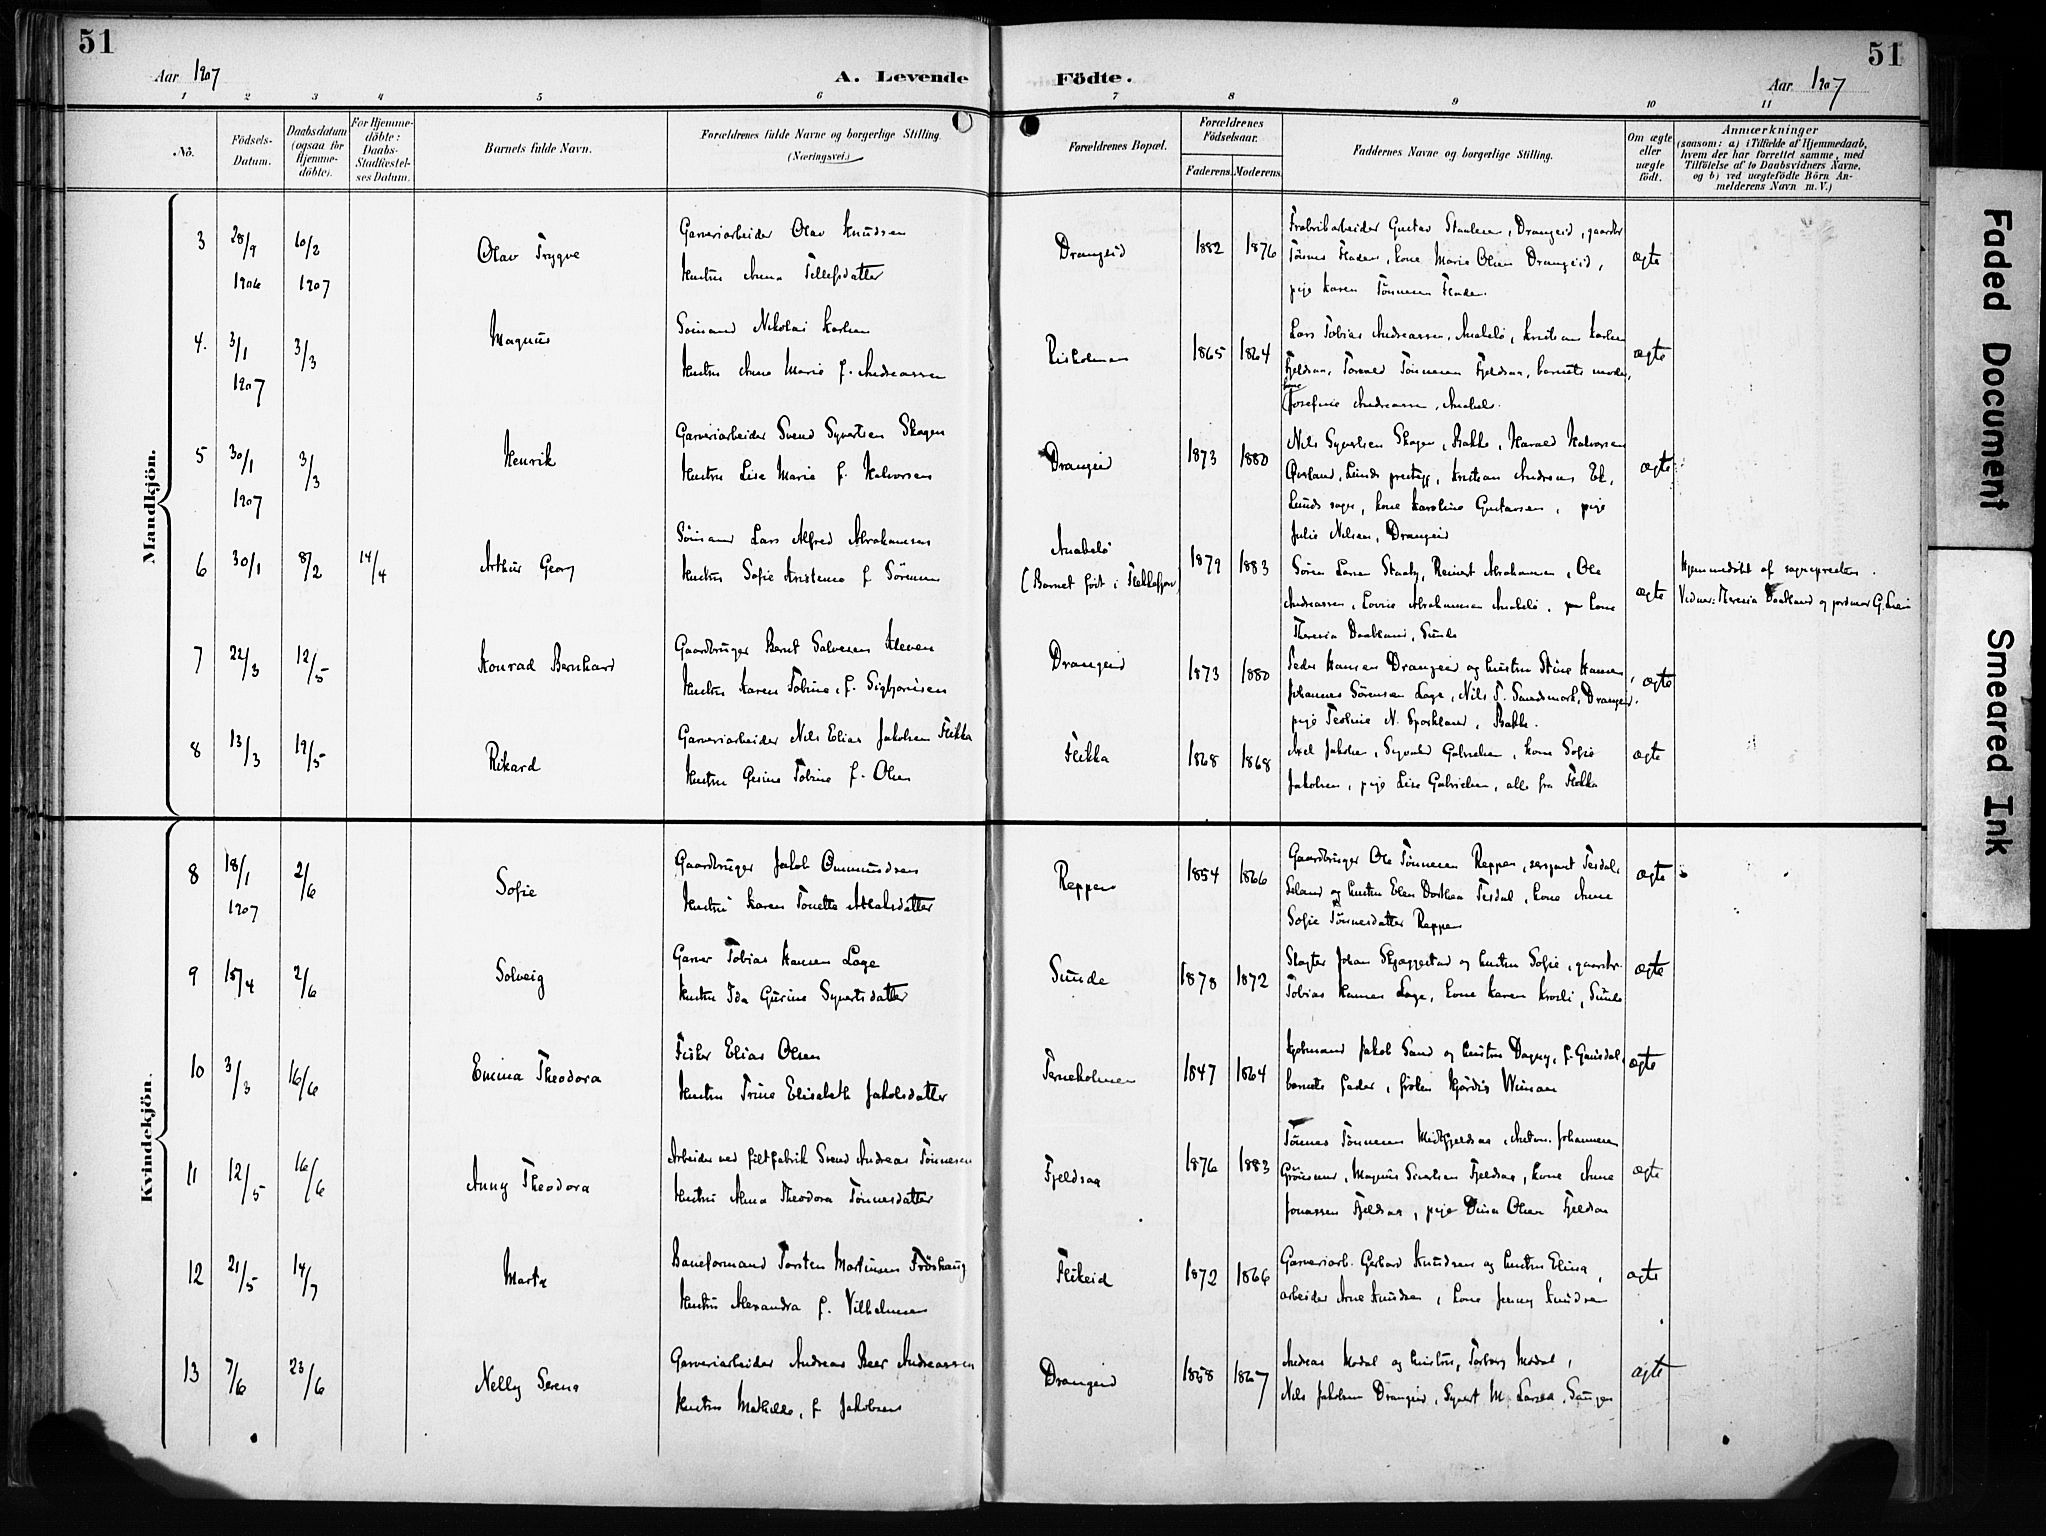 51
51
Aar 1907
A. Levende Födte.
Aar 1907
1 2 3 4 5 6 7 8 9 10 11
No.
Födsels-Datum.
Daabsdatum (ogsaa for Hjemmedöbte).
For Hjemmedöbte: Daabs-Stadfæstelses Datum.
Barnets fulde Navn.
Forældrenes fulde Navne og borgerlige Stilling. (Næringsvei.)
Forældrenes Bopæl.
Forældrenes Födselsaar.
Faderens. Moderens.
Faddernes Navne og borgerlige Stilling.
Om ægte eller uægte födt.
Anmærkninger (saasom: a) i Tilfælde af Hjemmedaab, hvem der har forrettet samme, med Tilföielse af to Daabsvidners Navne, og b) ved uægtefödte Börn Anmelderens Navn m. V.)
Mandkjön.
3 28/9 1906 10/2 1907 Olav Trygve
Garveriarbeider Olav Knudsen
Hustru Anna Tellefsdatter
Drangeid 1882 1876
Fabrikarbeider Gustav Staalesen, Drangeid, gaardbr
Tönnes Fladen, kone Marie Olsen Drangeid,
pige Karen Tönnesen Fladen.
ægte
4. 3/1 1907 3/3 Magnus
Sömand Nikolai Karlsen
Hustru Anne Marie f. Andreassen
Risholmen 1865 1864
Lars Tobias Andreassen, Anabelö, Kristian Karlsen
Fjeldsaa, Torvald Tönnesen Fjeldsaa, barnets moder,
kone Josefine Andreassen, Anabelö.
ægte
5 30/1 1907 3/3 Henrik
Garveriarbeider Svend Syvertsen Skagen
Hustru Lise Marie f. Halvorsen
Drangeid 1873 1880
Nils Syvertsen Skagen, Bakke, Harald Halvorsen
Lunds prestegj, Kristian Andreas Ek,
Lunds sogn, kone Karoline Gustavsen, pige
Julie Nilsen, Drangeid
ægte
6 30/1 8/2 14/4 Arthur Georg
Sömand Lars Alfred Abrahamsen
Hustru Sofie Kristence f Sörensen
Anabelö
(Barnet födt i Flekkefjord) 1879 1883
Sören Larsen Stauby, Reinert Abrahamsen, Ole
Andreassen, Lovise Abrahamsen Anabelö, kone
Theresia Daatland, Sunde
ægte
Hjemmedöbt af sognepresten.
Vidner: Theresia Daatland og jordmor G.
7 22/3 12/5 Konrad Bernhard
Gaardbruger Bernt Salvesen Kleven
Hustru Karen Tobine f. Sigbjörnsen
Drangeid 1873 1880
Peder Hansen Drangeid og hustru Stine Hansen,
Johannes Sörensen Loge, Nils T. Sandsmark, Drangeid,
pige Teoline N. Sporkland, Bakke.
ægte
8 13/3 19/5 Rikard
Garveriarbeider Nils Elias Jakobsen Flikka
Hustru Gesine Tobine f. Olsen
Flikka 1868 1868
Axel Jakobsen, Sigvald Gabrielsen, kone Sofie
Jakobsen, pige Lise Gabrielsen, alle fra Flikka
ægte
Kvindekjön.
8 18/1 1907 2/6 Sofie
Gaardbruger Jakob Ommundsen
Hustru Karen Tonette Abelsdatter
Reppen 1854 1866
Gaardbruger Ole Tönnesen Reppen, sersjant Tesdal,
og hustru Elen Dorthea Tesdal, kone Anne
Sofie Tönnesdatter Reppen
ægte
9 15/4 2/6 Solveig
Garver Tobias Hansen Loge
Hustru Ida Gurine Syvertsdatter
Sunde 1878 1872
Slagter Johan Skjæggestad og hustru Sofie, gaardbr.
Tobias Hansen Loge, kone Karen, Sunde
ægte
10 3/3 16/6 Emma Theodora
Fisker Elias Olsen
Hustru Trine Elisabeth Jakobsdatter
Terneholmen 1847 1864
Kjöbmand Jakob Sand og hustru Dagny, f. Gausdal,
barnets fader, fröken Hjördis Wiman
ægte
11 12/5 16/6 Anny Theodora
Arbeider ved filtfabrik Svend Andreas Tönnesen
Hustru Anna Theodora Tönnesdatter
Fjeldsaa 1876 1883
Tönnes Tönnesen Midtfjeldsaa, Anton Johannesen
Magnus Sivertsen Fjeldsaa, kone Anne
Jonassen Fjeldsaa, pige Dina Olsen Fjeldsaa
ægte
12 21/5 14/7 Marta
Baneformand Torsten Martinsen Fröshaug
Hustru Alexandra f. Vilhelmsen
Flikeid 1872 1866
Garveriarb. Gerhard Knudsen og hustru Elina,
arbeider Arne Knudsen, kone Jenny Knudsen
ægte
13 7/6 23/6 Nelly Serena
Garveriarbeider Andreas Beer Andreassen
Hustru Mathilde, f Jakobsen
Drangeid 1858 1867
Andreas Modal og hustru, Torborg Modal,
Nils Jakobsen Drangeid, Syvert M. Larsen,
ægte
Faded Document
Smeared Ink